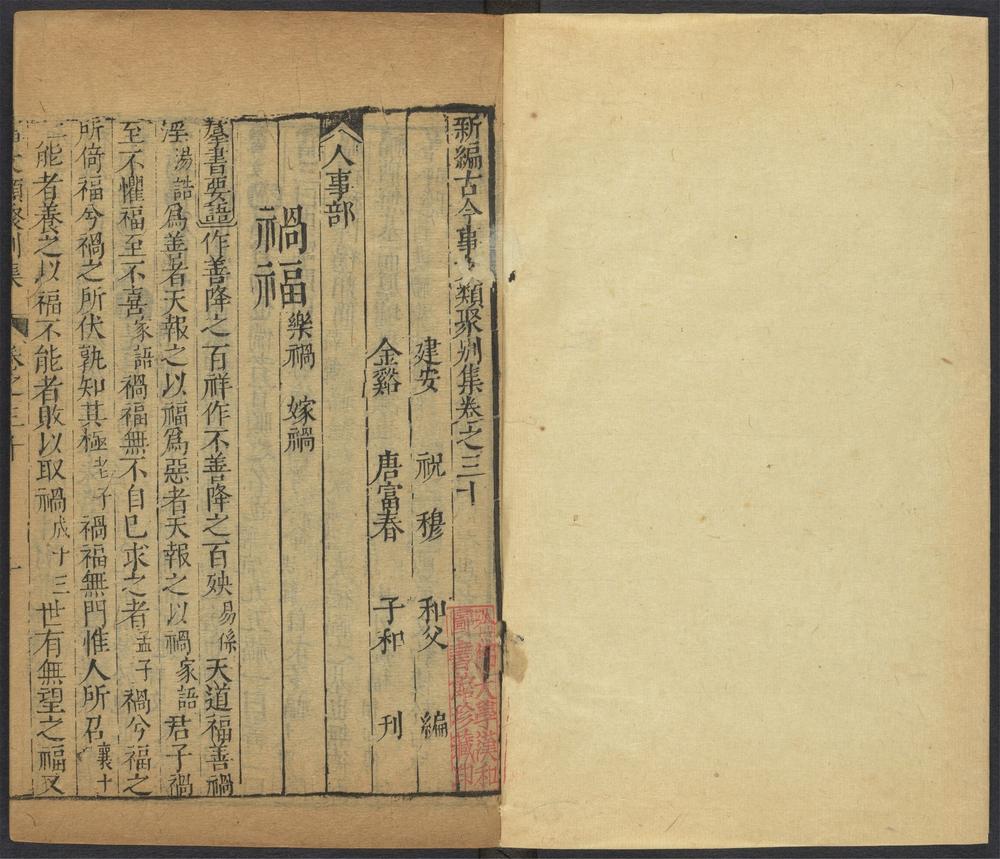 新編古今事文類聚別集卷之三十
建安 祝穆 和父 編
金谿 唐富春 子和 刊
人事部
禍福 樂禍 嫁禍
羣書要語作善降之百祥作不善降之百殃易係天道福善禍
淫湯誥爲善者天報之以福爲惡者天報之以禍家語君子禍
至不懼福至不喜家語禍福無不自己求之者孟子禍兮福之
所倚福兮禍之所伏孰知其極老子禍福無門惟人所召襄十
三能者養之以福不能者敗以取禍成十三世有無望之福又
文類聚別集 卷之三十 一